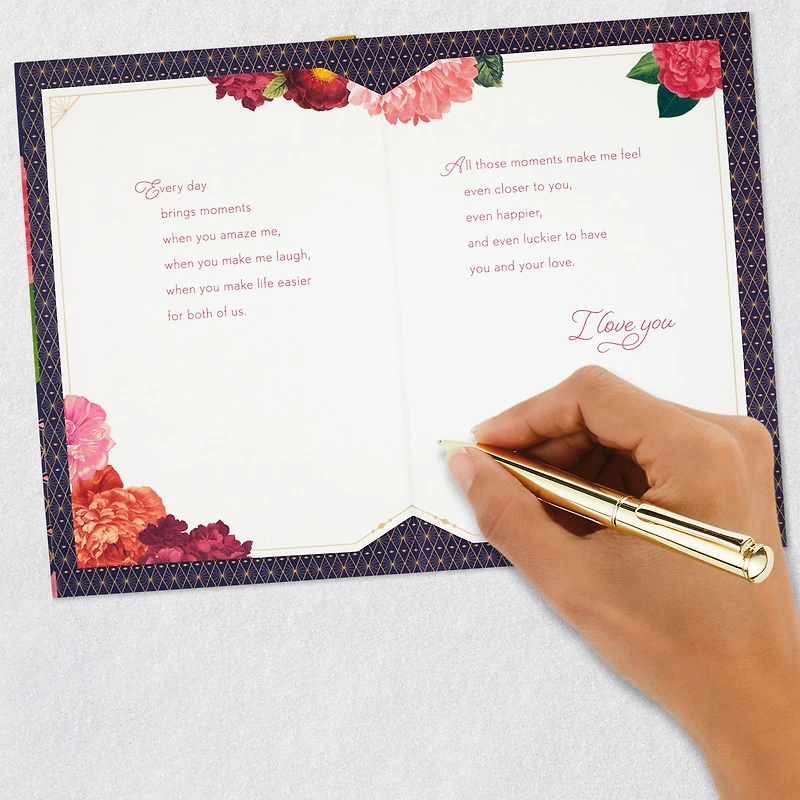 Every day
brings moments
when you amaze me,
when you make me laugh,
when you make life easier
for both of us.
All those moments make me feel
even closer to you,
even happier,
and even luckier to have
you and your love.
I love you